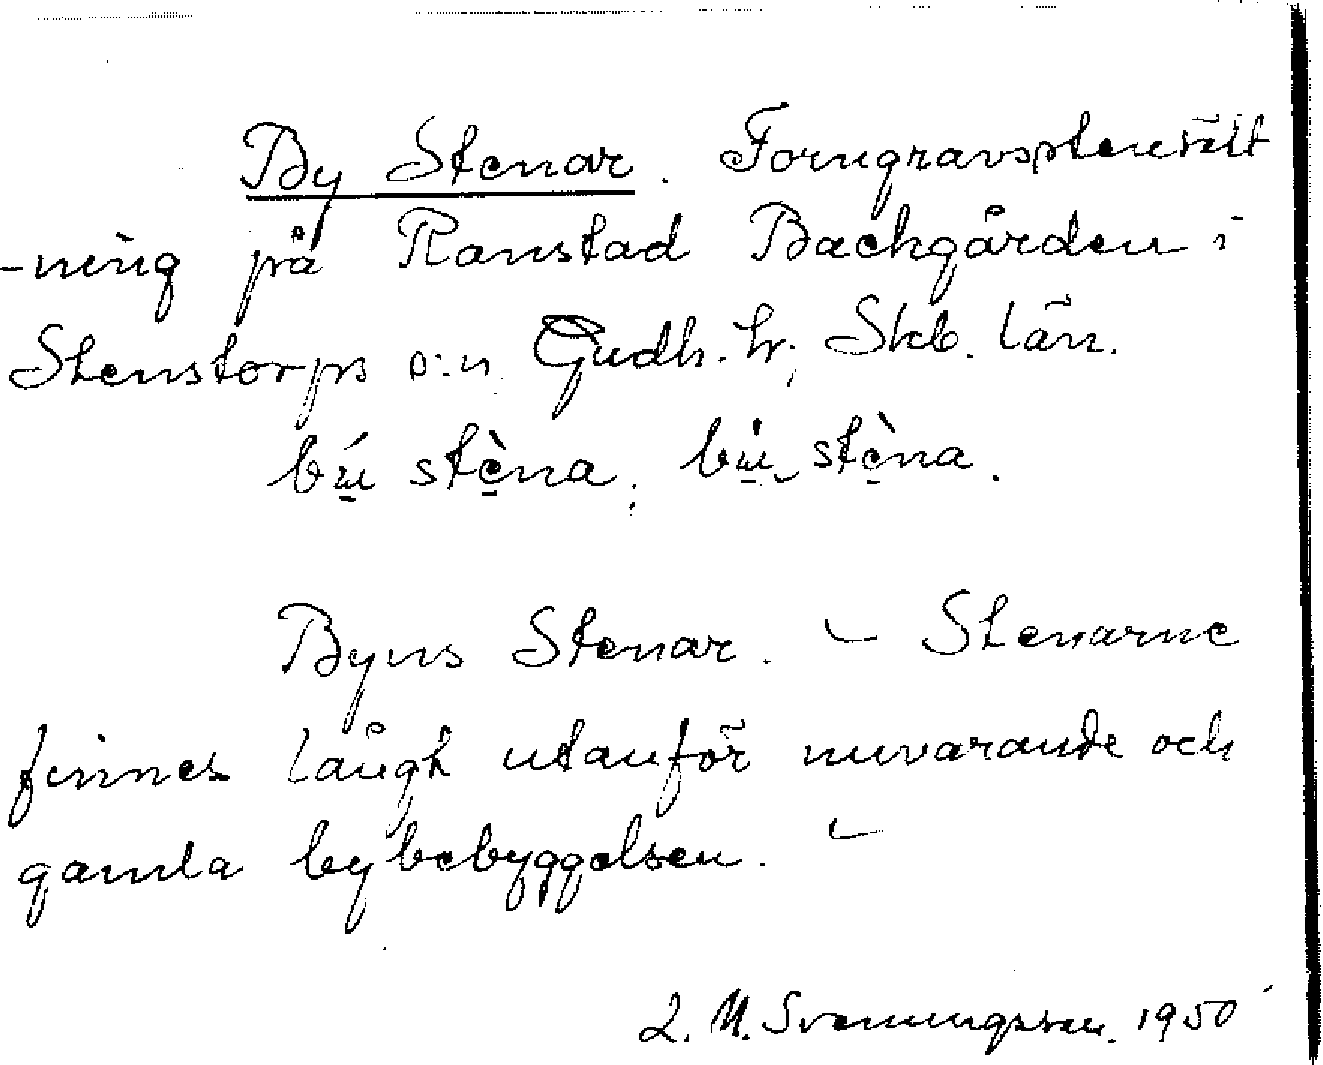 By Stenar. Forngravstensätt
-ning på Ranstad Backgården i
Stenstorps s:n Gudh. hr, Skb. län.
bu̲ stèna, bu̲ stèna.
Byns Stenar. – Stenarne
finnes långt utanför nuvarande och
gamla bybebyggelsen. –
L. M. Svenungsson. 1950